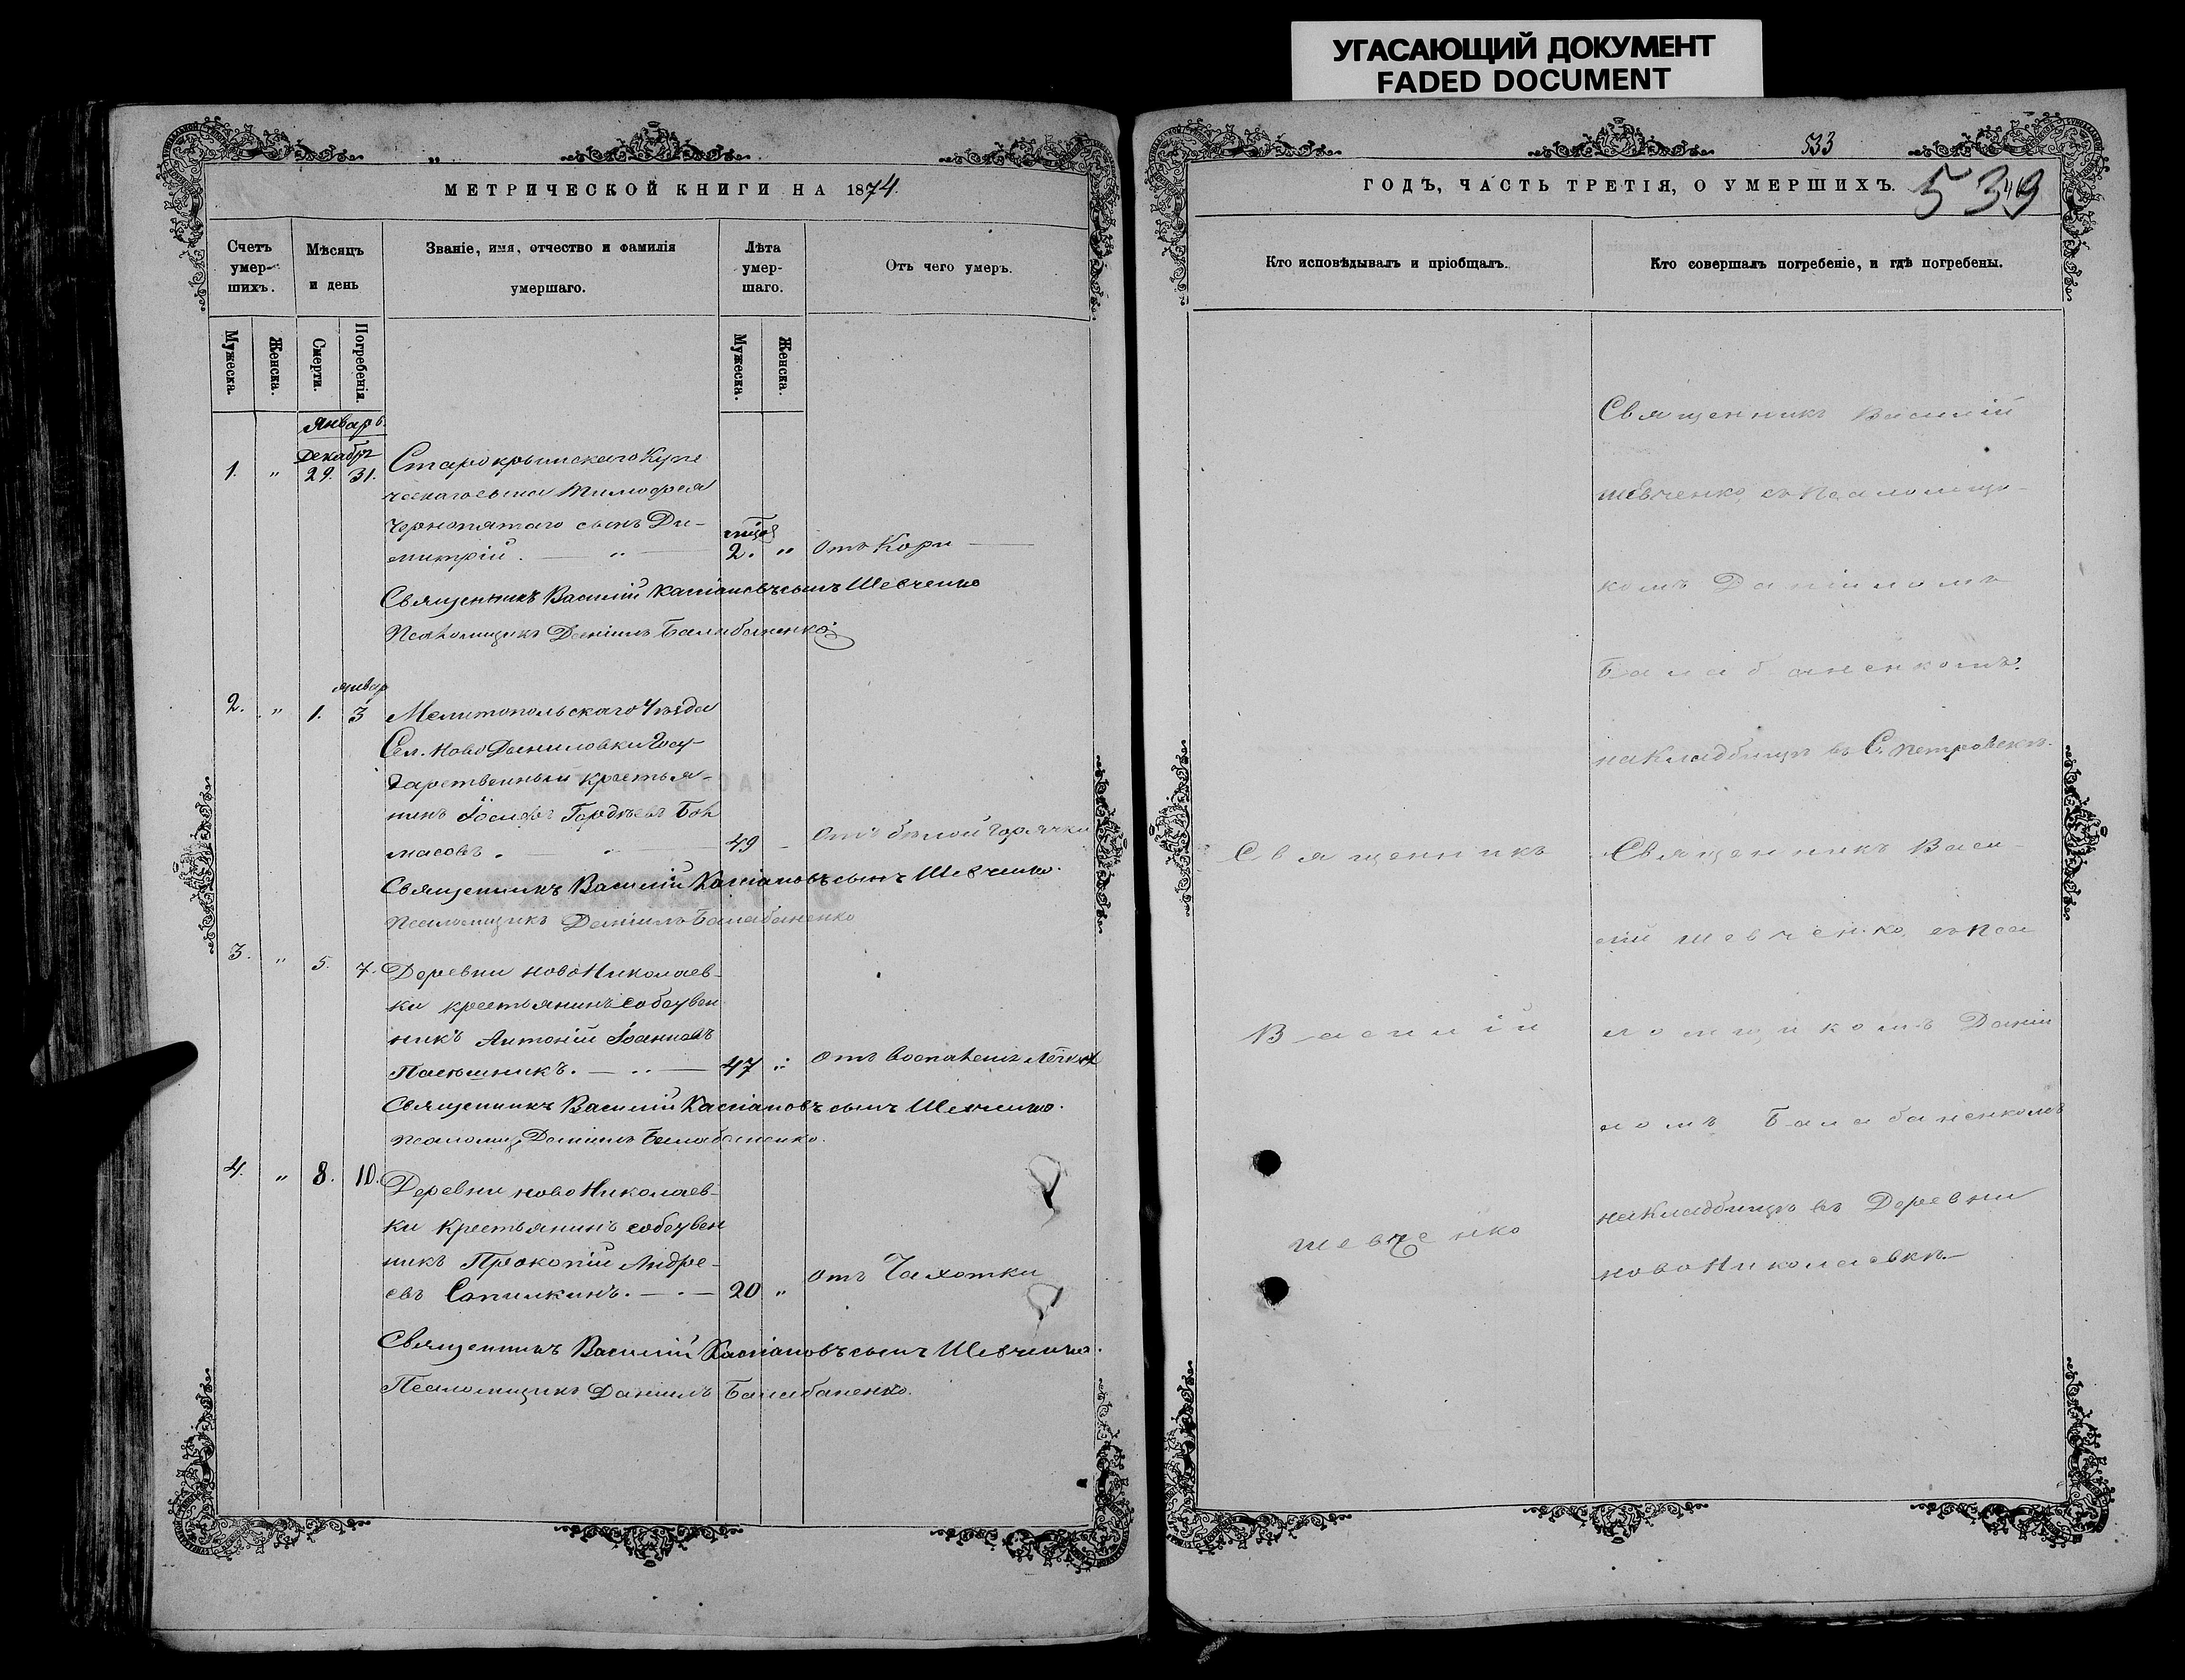 УГАСАЮЩИЙ ДОКУМЕНТ
FADED DOCUMENT
МЕТРИЧЕСКОЙ КНИГИ НА 1874.
Счетъ умер-шихъ.
Мѣсяцъ и день
Званіе, имя, отчество и фамилія умершаго.
Лѣта умер-шаго.
Отъ чего умеръ.
Мужеска.
Женска.
Смерти.
Погребенія.
Мужеска.
Женска.
Январь
Декабрь
1. " 29. 31. Старокрымскаго Купе
ческаго сына Тимофея
Чернопятаго сынъ Ди-
митрій. — " — 2. " Отъ Кори —
Священникъ Василій Касіановъ сынъ Шевченко
Псаломщикъ Даніилъ Балабаненко
январ
2. " 1. 3 Мелитопольскаго Уѣзда
Сел. Ново Даниловки Госу-
дарственный крестья-
нинъ Іосифъ Гордѣевъ
масовъ. — 49 - Отъ бѣлой горячки
Священникъ Василій Касіановъ сынъ Шевченко.
Псаломщикъ Даніилъ Балабаненко
3. " 5. 7. Деревни Ново Николаев-
ки крестьянинъ собствен
никъ Антоній Іоанновъ
Пасѣшникъ. — " — 47 " Отъ воспален. лёгких
Священникъ Василій Касіановъ сынъ Шевченко.
Псаломщ. Даніилъ Балабаненко.
4. " 8. 10. Деревни Ново Николаев-
ки Крестьянинъ собствен
никъ Прокопій Андре-
евъ Сопилкинъ. — . — 20 " Отъ Чахотки
Священникъ Василій Касіановъ сынъ Шевченко.
Псаломщикъ Даніилъ Балабаненко.
533
ГОДЪ, ЧАСТЬ ТРЕТІЯ, О УМЕРШИХЪ.
Кто исповѣдывалъ и пріобщалъ.
Кто совершалъ погребеніе, и гдѣ погребены.
Священникъ Василій
Шевченко, съ Псаломщи-
комъ Даніиломъ
Балабаненкомъ.
на Кладбищѣ въ С. Петровскѣ.
Священникъ
Василій
Шевченко
Священникъ Васи-
лій Шевченко, съ Пса
ломщикомъ Даніи
ломъ Балабаненкомъ
на Кладбищѣ въ Деревни
Ново Николаевкѣ.—